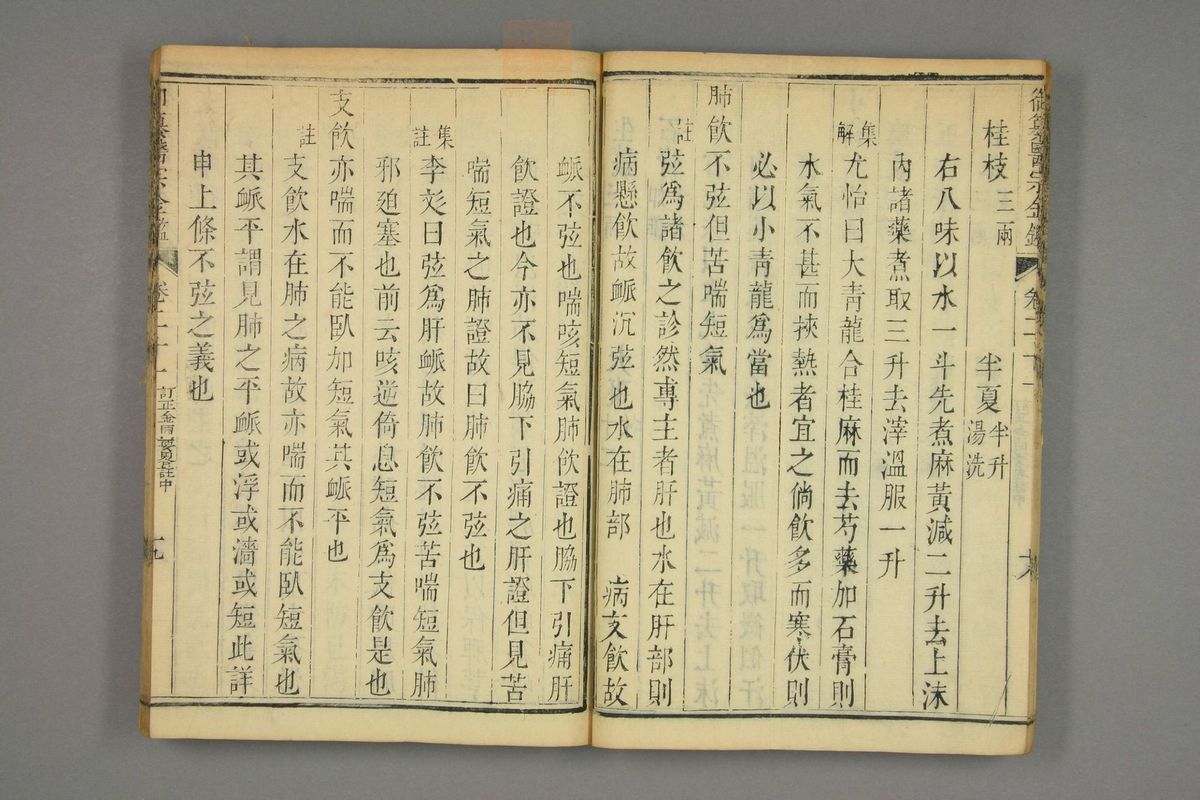 御纂醫宗金鑑 卷二十一 十八
桂枝三兩 半夏半升湯洗
右八味以水一斗先煮麻黃減二升去上沫
內諸藥煮取三升去滓溫服一升
集解尤怡曰大青龍合桂麻而去芍藥加石膏則
水氣不甚而挾熱者宜之倘飲多而寒伏則
必以小青龍為當也
肺飲不弦但苦喘短氣
註弦為諸飲之診然專主者肝也水在肝部則
病懸飲故衇沉弦也水在肺部 病支飲故
衇不弦也喘咳短氣肺飲證也脇下引痛肝
飲證也今亦不見脇下引痛之肝證但見苦
喘短氣之肺證故曰肺飲不弦也
集註李彣曰弦為肝衇故肺飲不弦苦喘短氣肺
邪迫塞也前云咳逆倚息短氣為支飲是也
支飲亦喘而不能臥加短氣其衇平也
註支飲水在肺之病故亦喘而不能臥短氣也
其衇平謂見肺之平衇或浮或濇或短此詳
申上條不弦之義也
御纂醫宗金鑑 卷二十一 訂正金匱要畧註中 十九